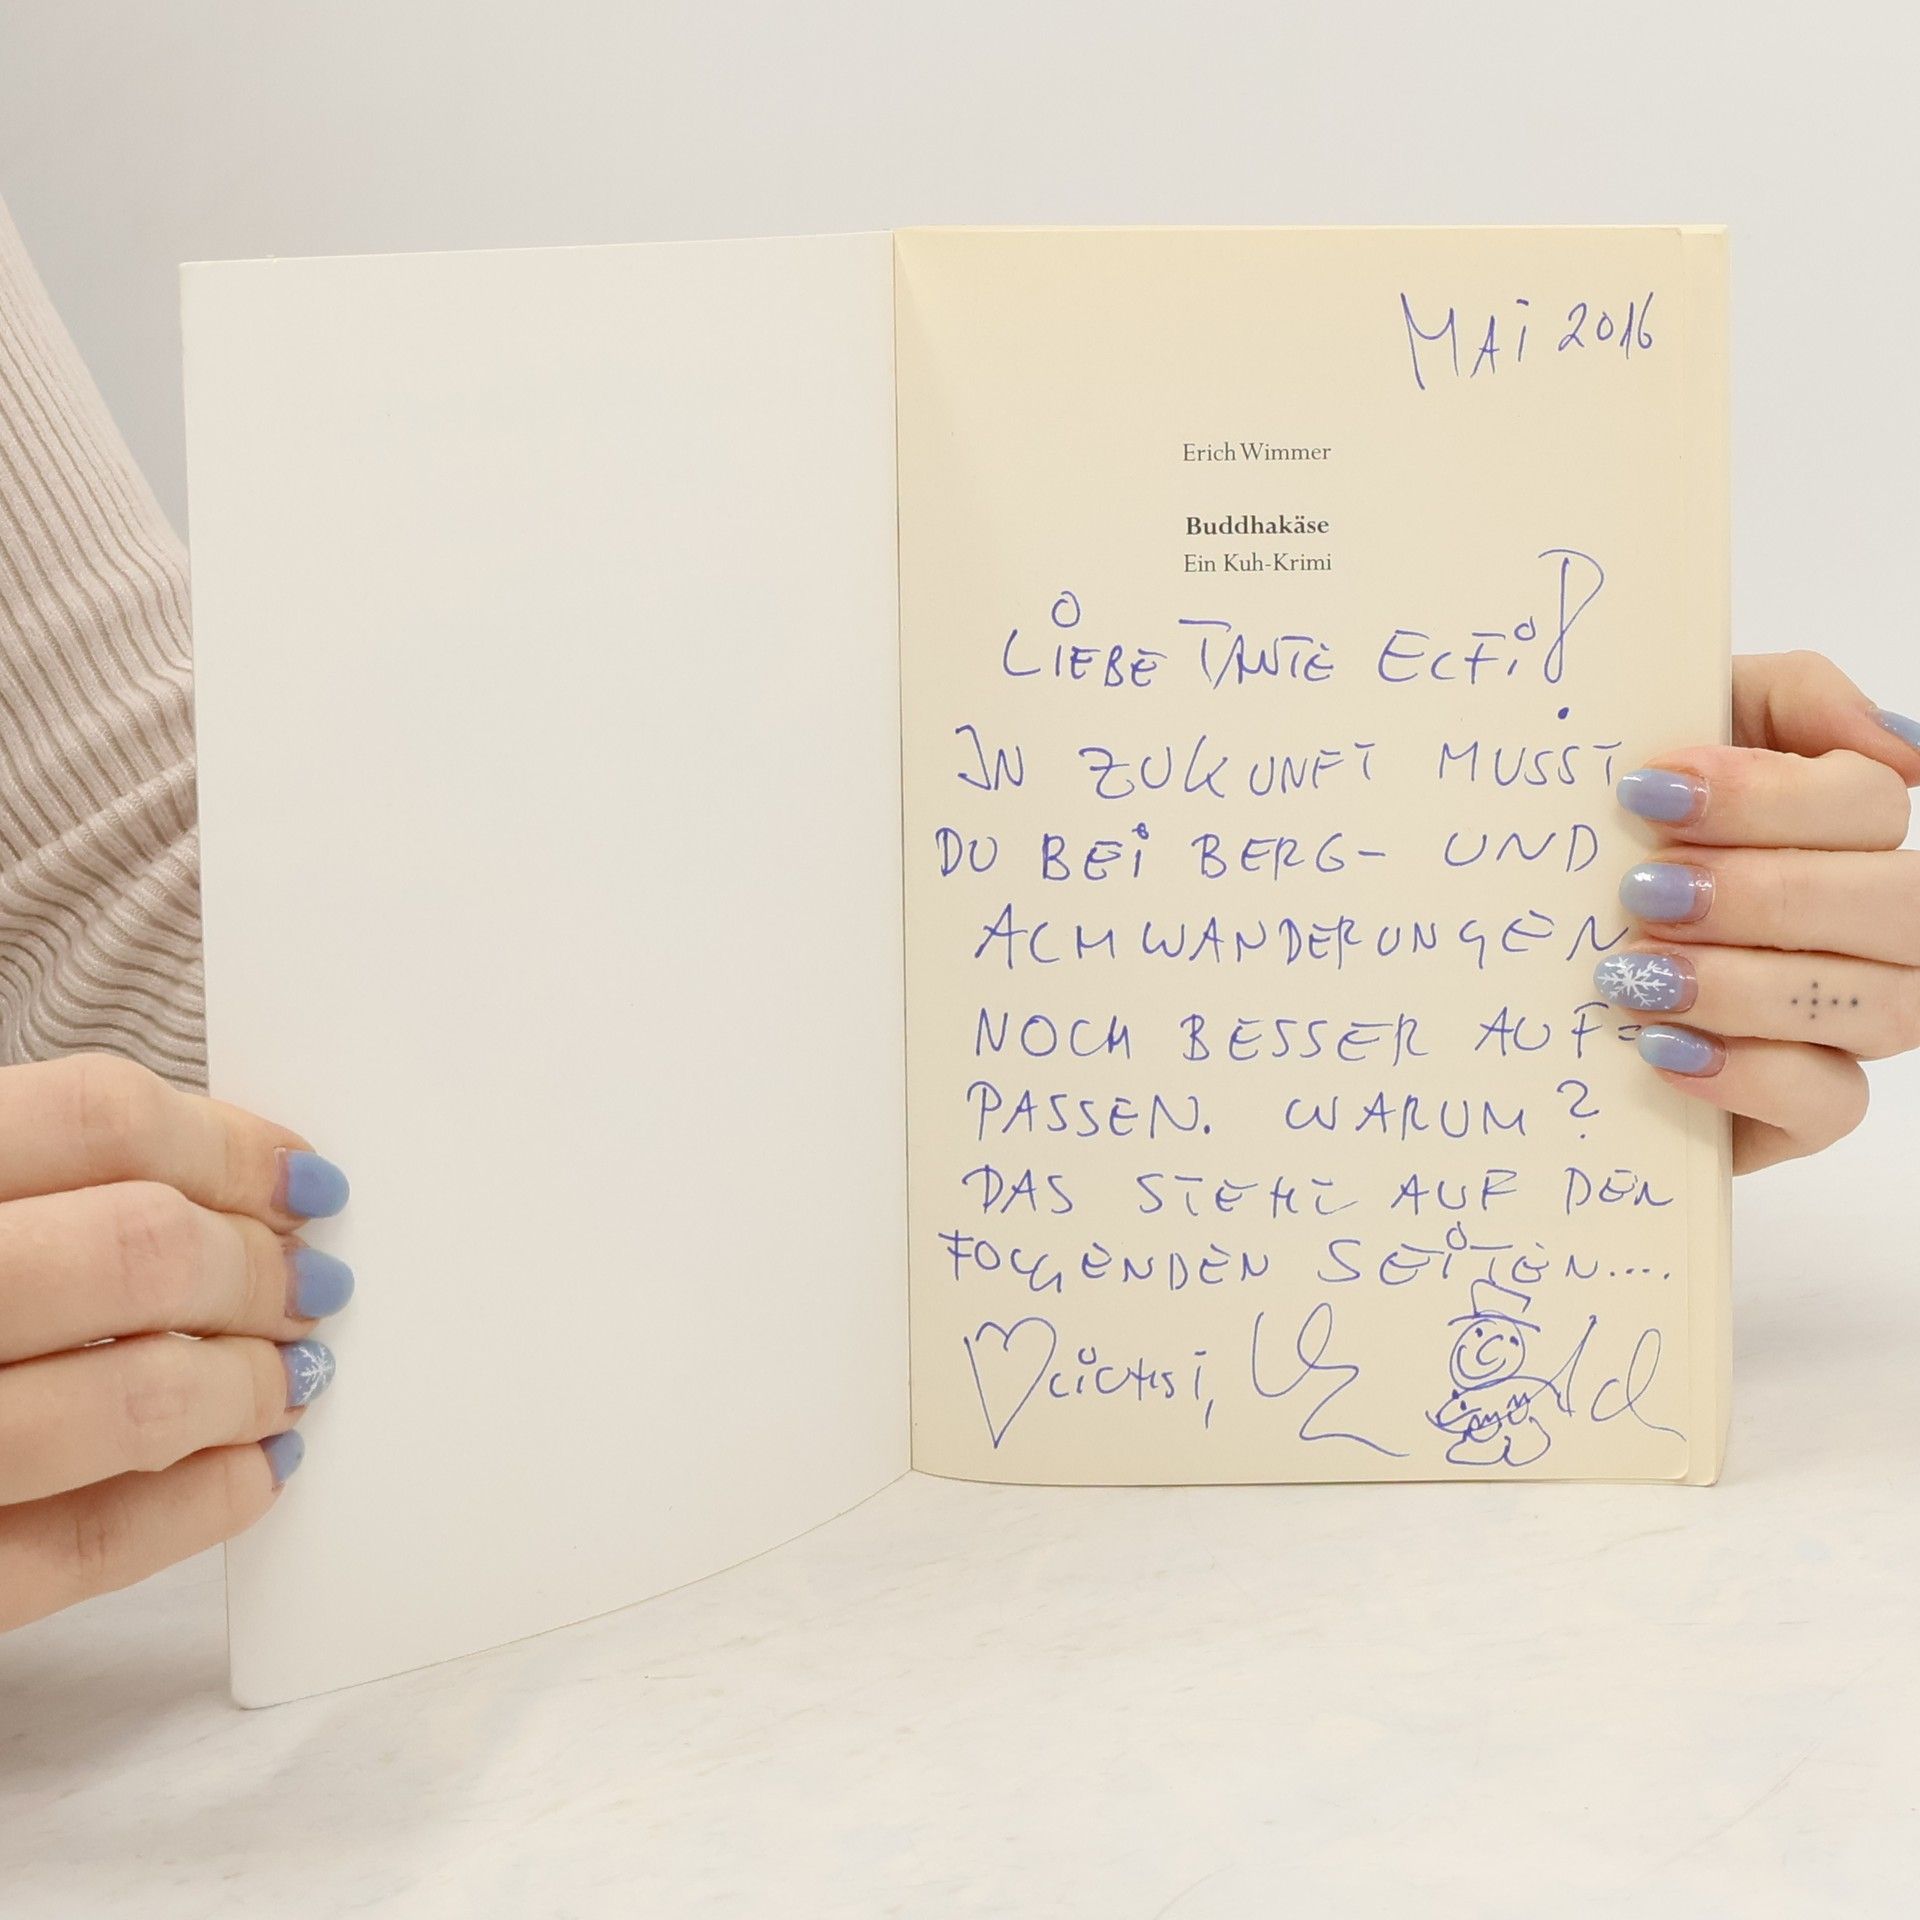 MAI 2016
Erich Wimmer
Buddhakäse
Ein Kuh-Krimi
LIEBE TANTE ELFI!
IN ZUKUNFT MUSST
DU BEI BERG- UND
ALMWANDERUNGEN
NOCH BESSER AUF=
PASSEN. WARUM?
DAS STEHT AUF DEN
FOLGENDEN SEITEN....
♡LICHST,